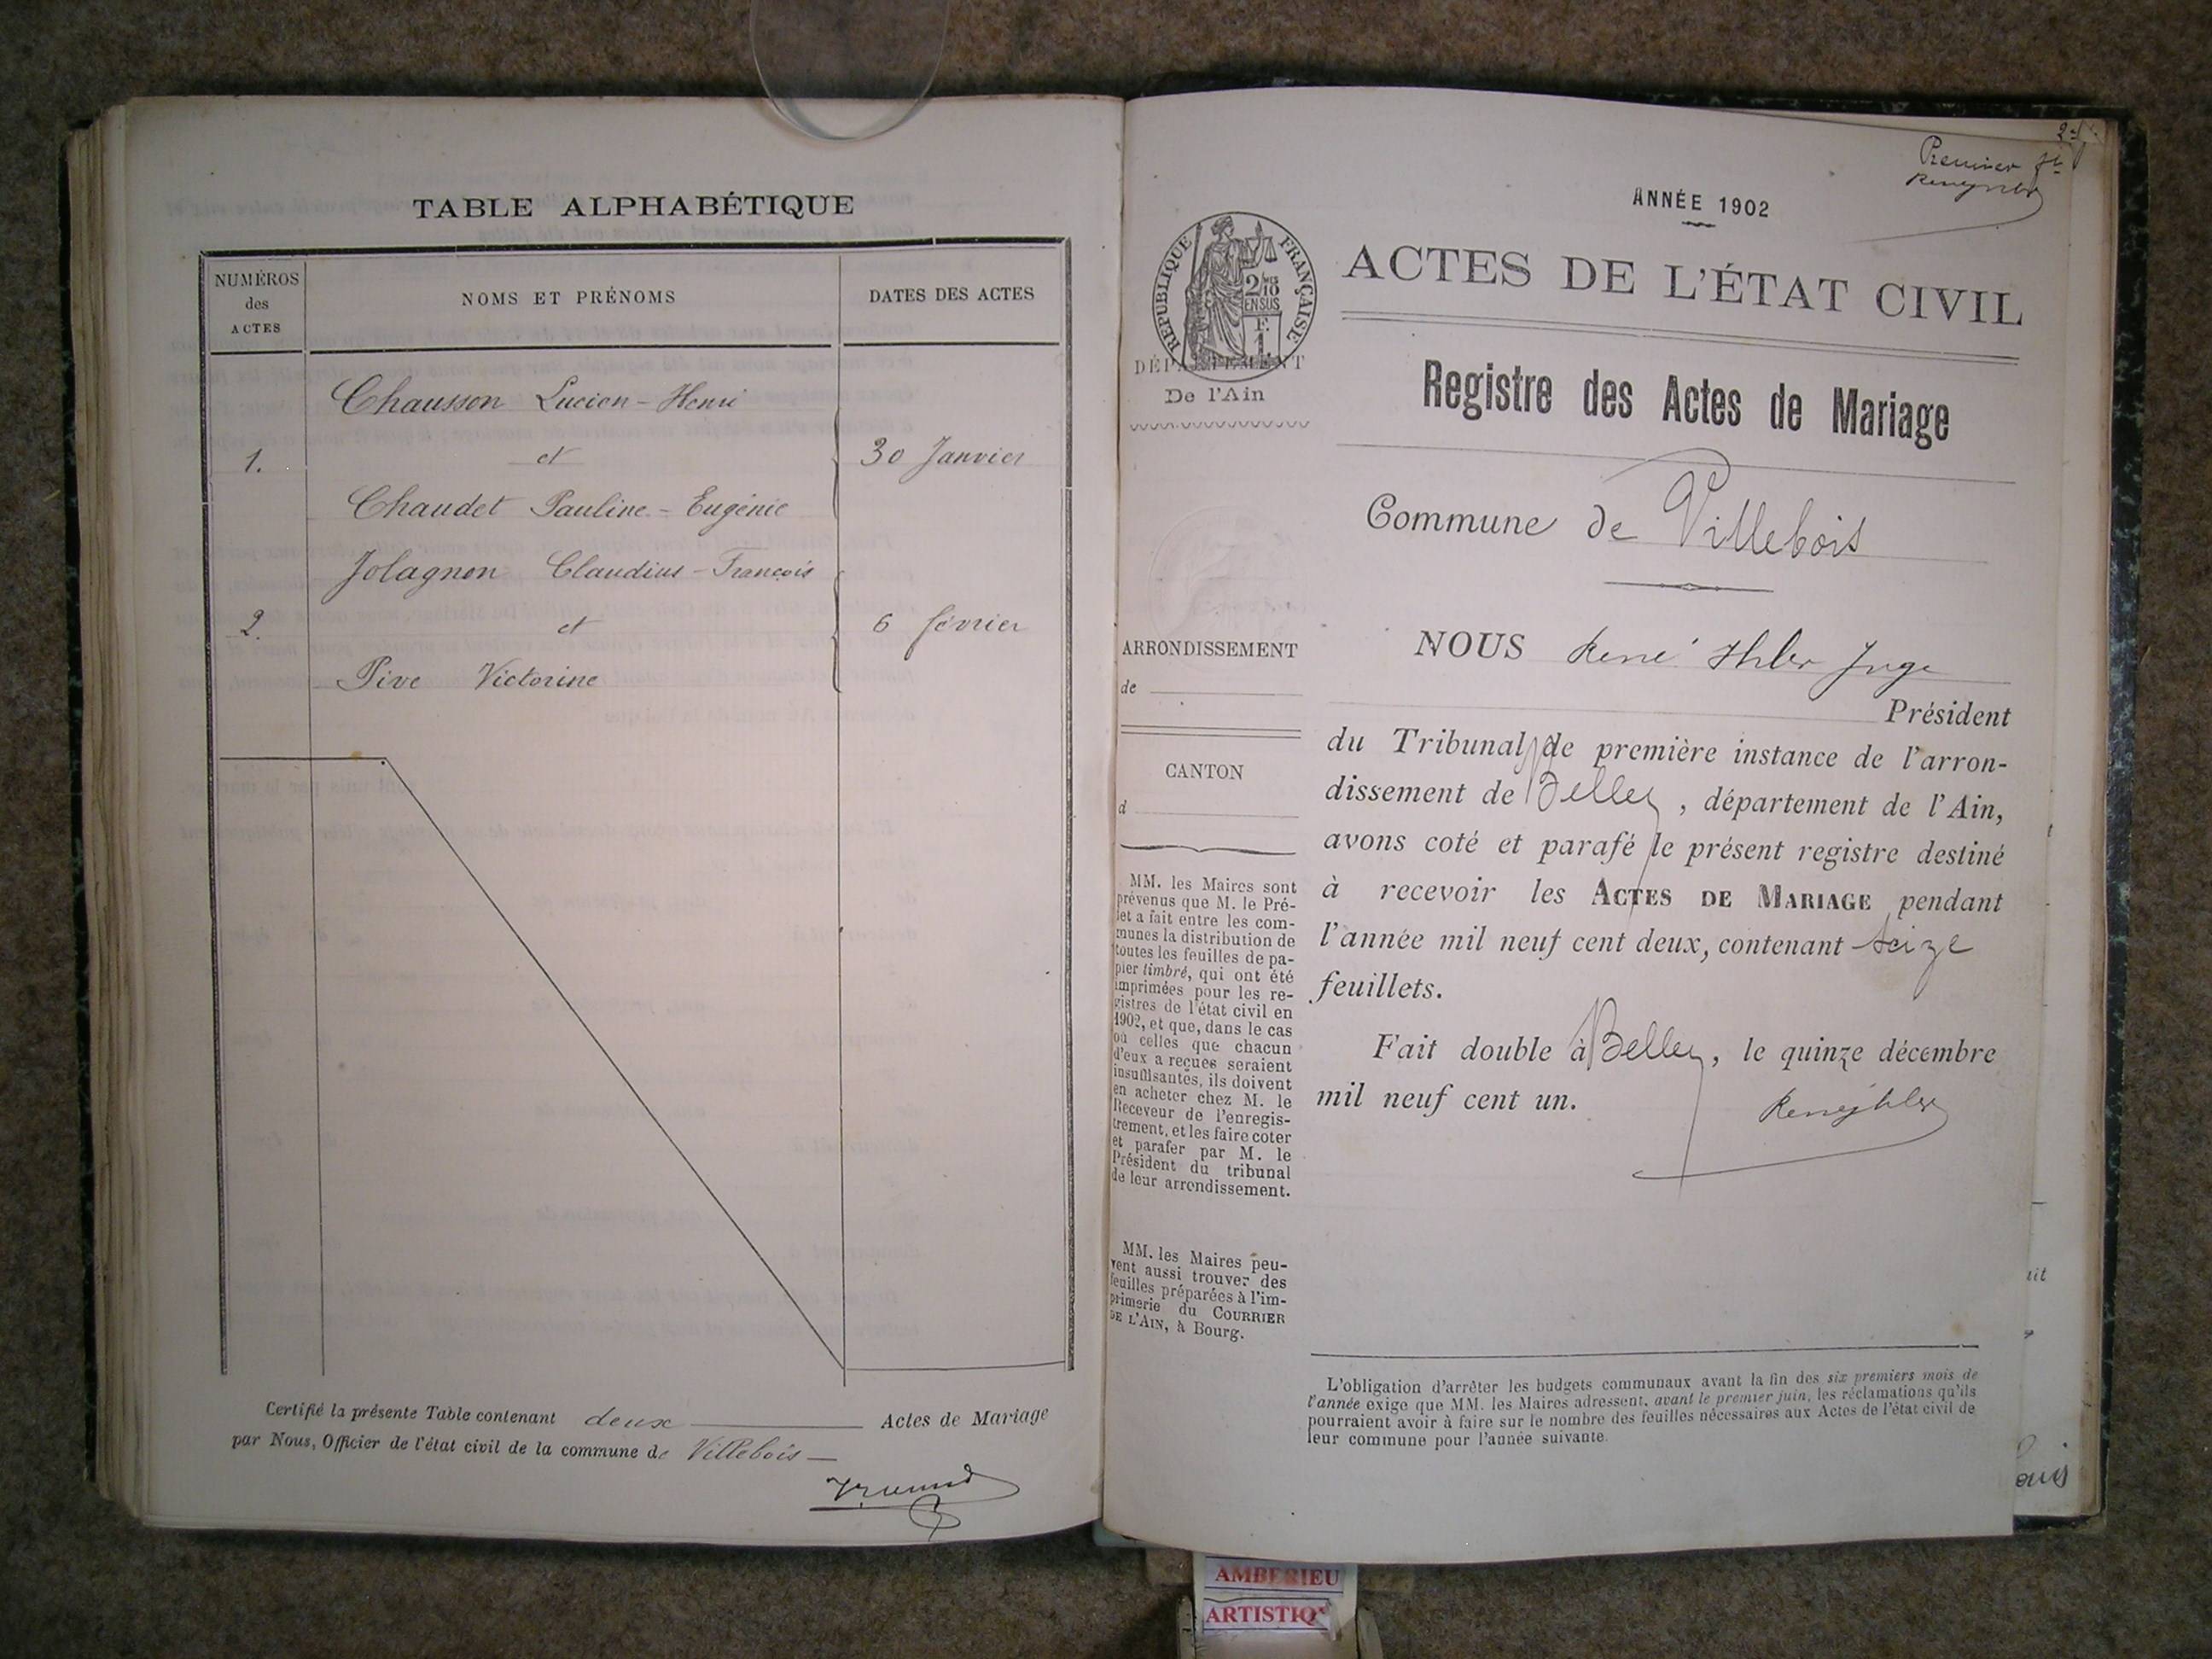 TABLE ALPHABÉTIQUE
NUMÉROS
des
ACTES
NOMS ET PRÉNOMS
DATES DES ACTES
Chausson Lucien - Henri
1.
et
30 Janvier
Chaudet Pauline - Eugénie
Jolagnon Claudius - François
2.
et
6 février
Pive Victorine
Certifié la présente Table contenant deux Actes de Mariage
par Nous, Officier de l'état civil de la commune de Villebois
Premier
ANNÉE 1902
RÉPUBLIQUE FRANÇAISE
2/10
EN SUS
F.
1
ACTES DE L'ÉTAT CIVIL
DÉPARTEMENT
De l'Ain
Registre des Actes de Mariage
Commune de Villebois
ARRONDISSEMENT
de
CANTON
d
MM. les Maires sont
prévenus que M. le Pré-
fet a fait entre les com-
munes la distribution de
toutes les feuilles de pa-
pier timbré, qui ont été
imprimées pour les re-
gistres de l'état civil en
1902, et que, dans le cas
où celles que chacun
d'eux a reçues seraient
insuffisantes, ils doivent
en acheter chez M. le
Receveur de l'enregis-
trement, et les faire coter
et parafer par M. le
Président du tribunal
de leur arrondissement.
MM. les Maires peu-
vent aussi trouver des
feuilles préparées à l'im-
primerie du COURRIER
DE L'AIN, à Bourg.
NOUS René Ihler Juge
Président
du Tribunal de première instance de l'arron-
dissement de Belley, département de l'Ain,
avons coté et parafé le présent registre destiné
à recevoir les ACTES DE MARIAGE pendant
l'année mil neuf cent deux, contenant seize
feuillets.
Fait double à Belley, le quinze décembre
mil neuf cent un.
René Ihler
L'obligation d'arrêter les budgets communaux avant la fin des six premiers mois de
l'année exige que MM. les Maires adressent, avant le premier juin, les réclamations qu'ils
pourraient avoir à faire sur le nombre des feuilles nécessaires aux Actes de l'état civil de
leur commune pour l'année suivante.
AMBERIEU
ARTISTIQ